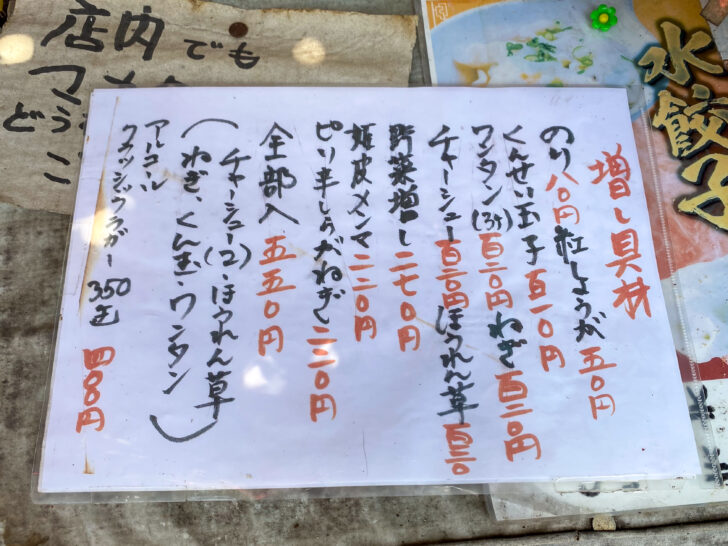 水餃子
増し具材
のり 八〇円 紅しょうが 五〇円
くんせい玉子 百一〇円
ワンタン(3ケ) 百三〇円 ねぎ 百二〇円
チャーシュー 百三〇円 ほうれん草 百三〇
野菜増し 二七〇円
姫皮メンマ 二二〇円
ピリ辛しょうがねぎ 二二〇円
全部入 五五〇円
(チャーシュー(2)・ほうれん草
ねぎ、くん玉・ワンタン)
アルコール
クラッシックラガー 350缶 四〇〇円
店内でも